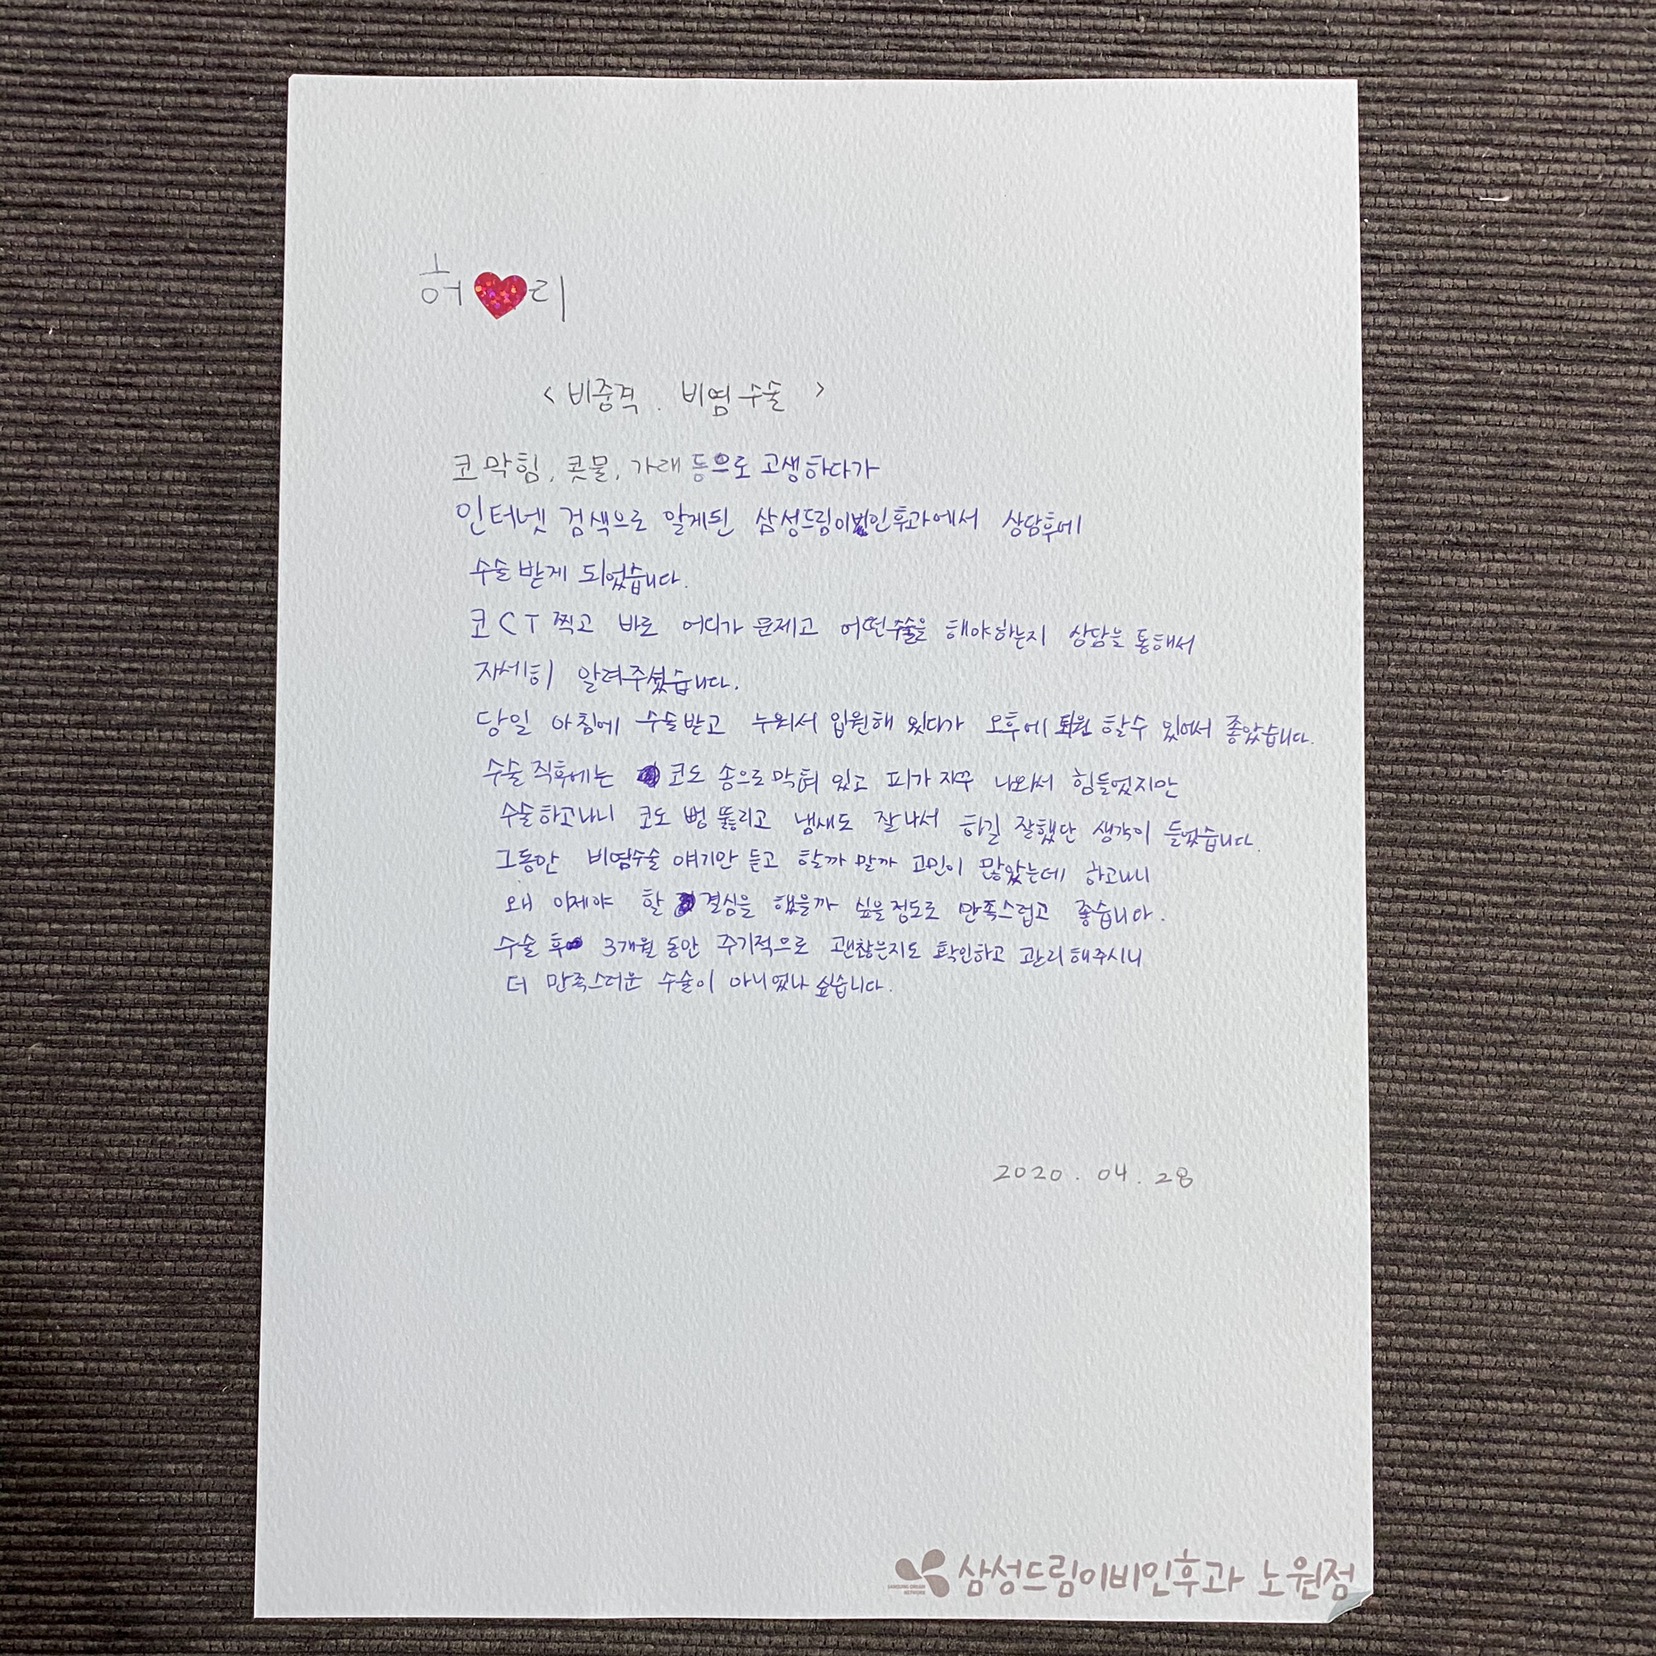 허♥리
< 비중격. 비염수술 >
코막힘, 콧물, 가래 등으로 고생하다가
인터넷 검색으로 알게된 삼성드림이비인후과에서 상담후에
수술받게 되었습니다.
코CT 찍고 바로 어디가 문제고 어떤수술을 해야하는지 상담을 통해서
자세히 알려주셨습니다.
당일 아침에 수술받고 누워서 입원해 있다가 오후에 퇴원 할수 있어서 좋았습니다.
수술 직후에는 코도 솜으로 막혀 있고 피가 자꾸 나와서 힘들었지만
수술하고나니 코도 뻥 뚫리고 냄새도 잘 나서 하길 잘했단 생각이 들었습니다.
그동안 비염수술 얘기만 듣고 할까 말까 고민이 많았는데 하고나니
왜 이제야 할 결심을 했을까 싶을정도로 만족스럽고 좋습니다.
수술 후 3개월 동안 주기적으로 괜찮은지도 확인하고 관리해주시니
더 만족스러운 수술이 아니었나 싶습니다.
2020. 04. 28
삼성드림이비인후과 노원점